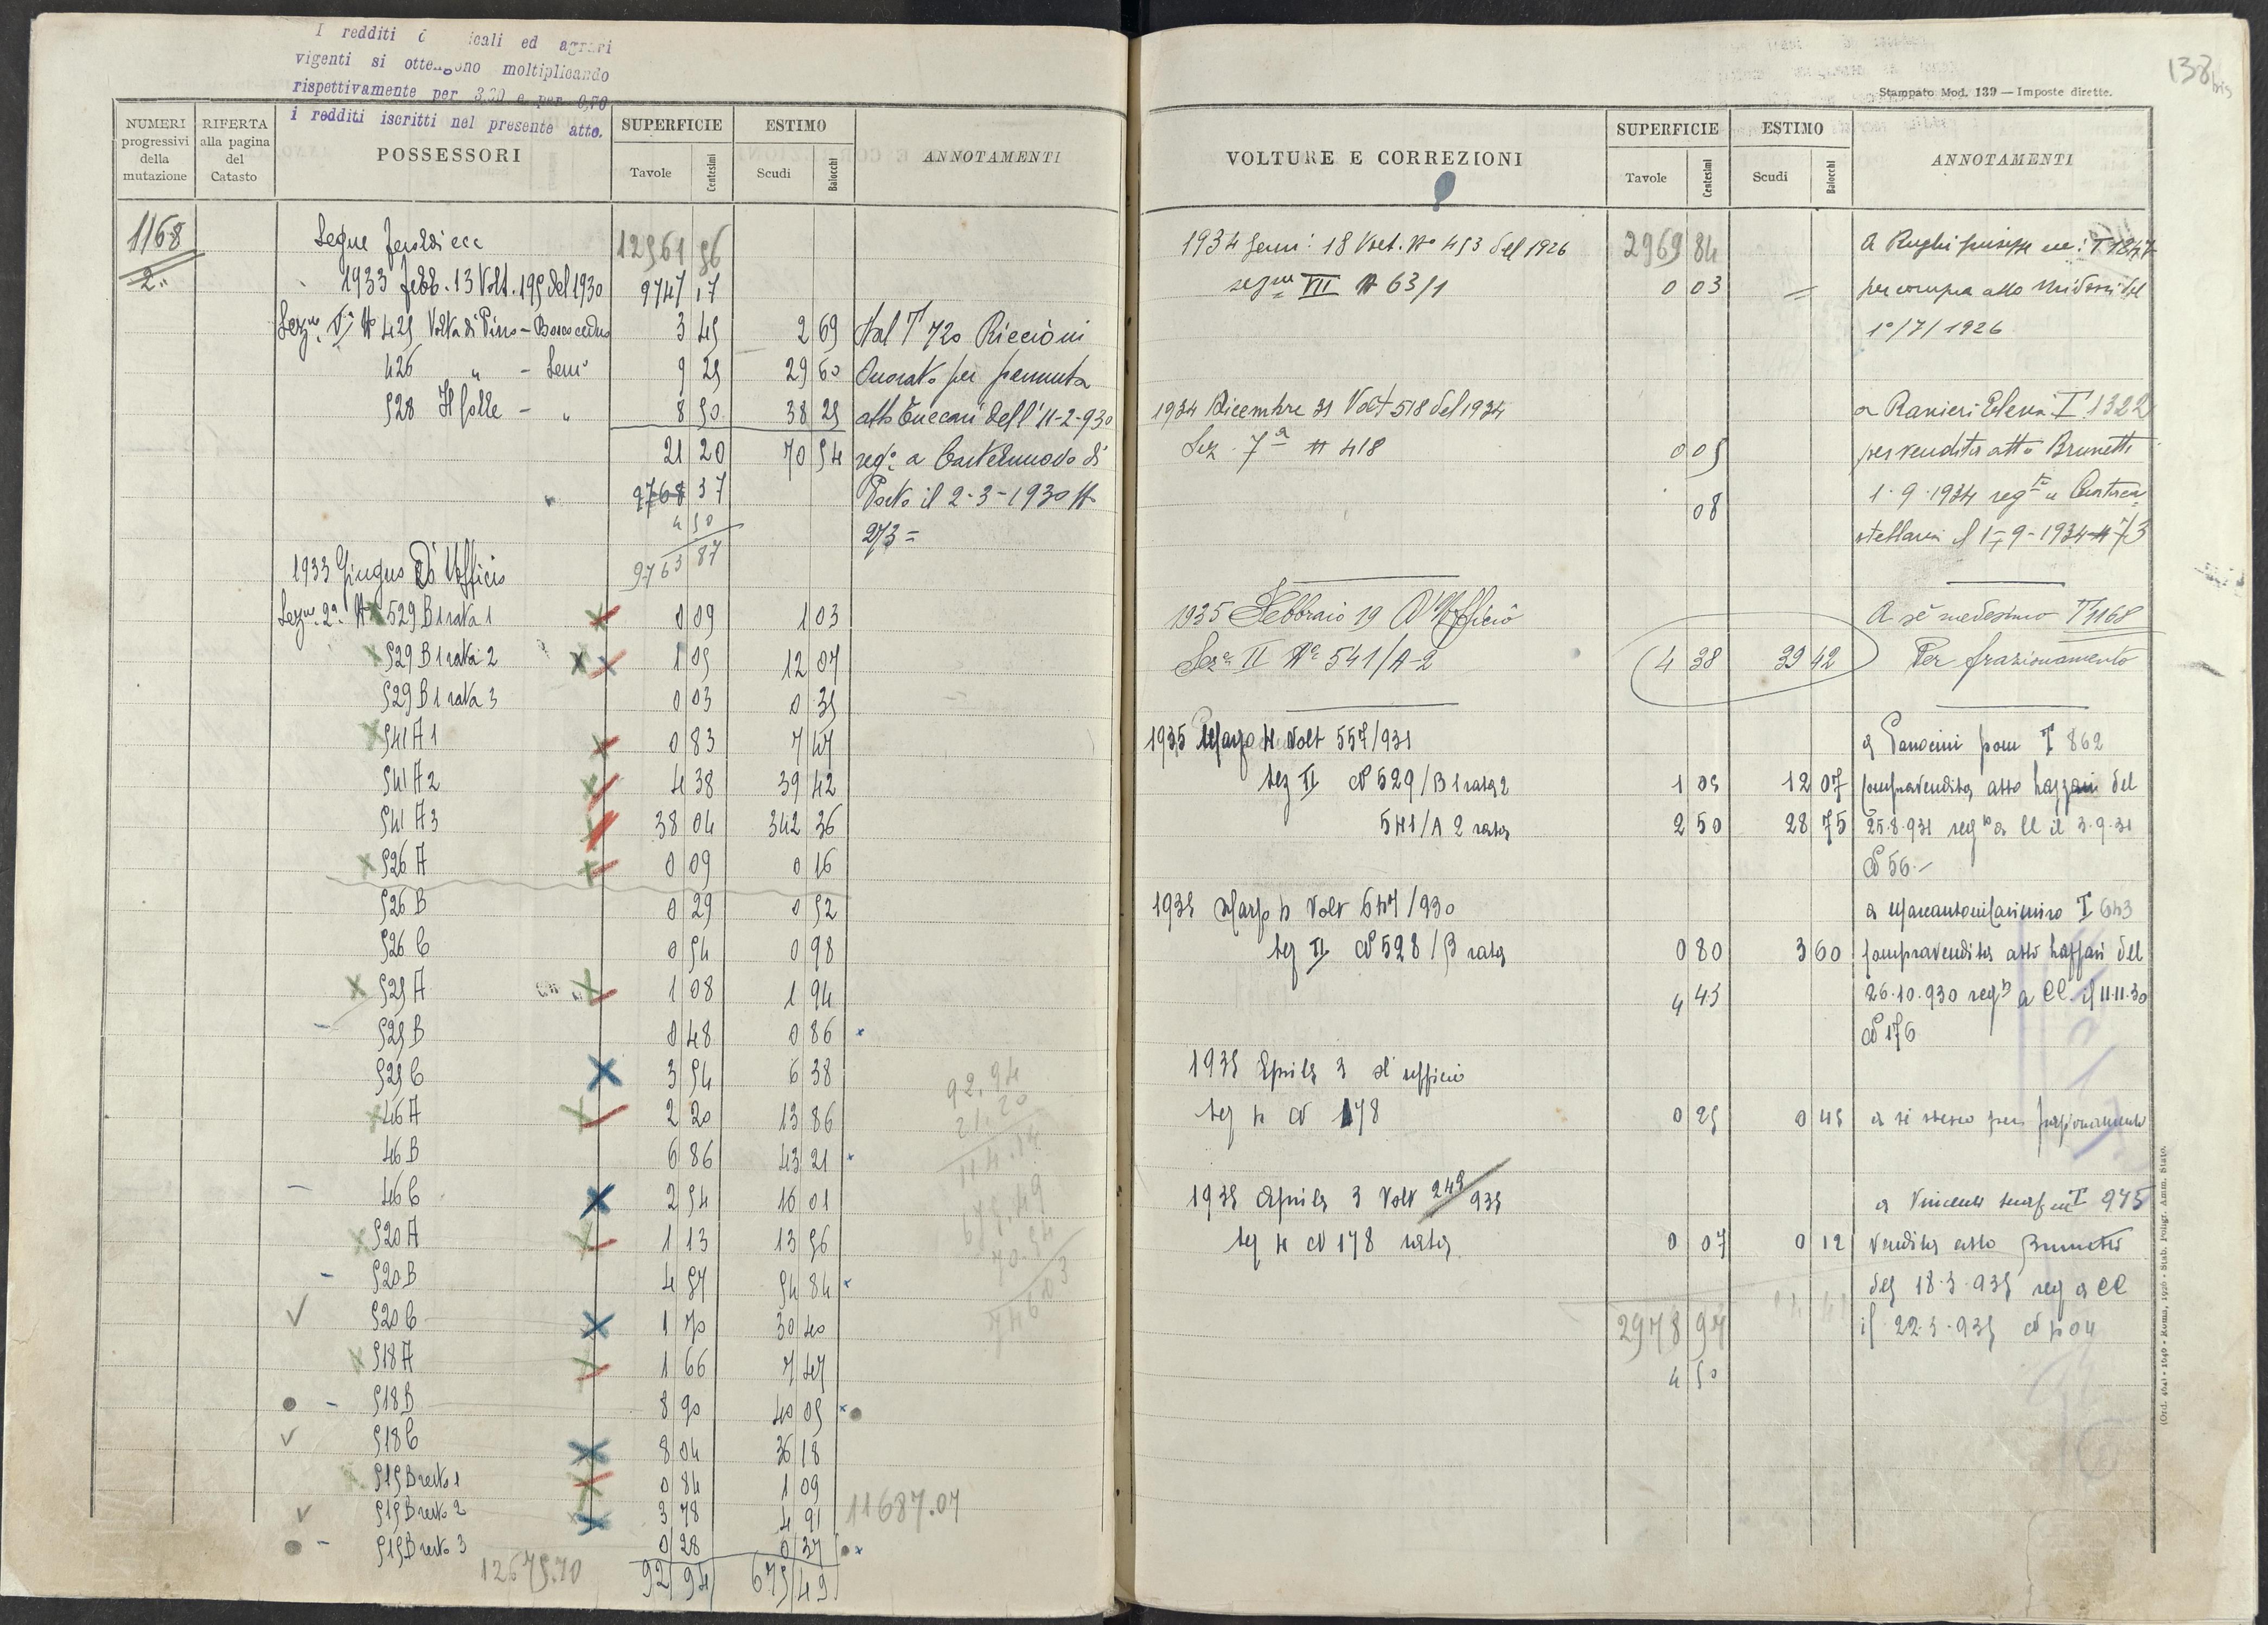 I redditi ed agrari
vigenti si ottengono moltiplicando
rispettivamente per 3,30 e per 0,70
i redditi iscritti nel presente atto.
NUMERI progressivi della mutazione
RIFERTA alla pagina del Catasto
POSSESSORI
SUPERFICIE
Tavole Centesimi
ESTIMO
Scudi Baiocchi
ANNOTAMENTI
1168 Segue ecc 12961 96
2. 1933 Febb. 13 Volt. 199 del 1930 9747 17
Sezne V N 425 Volta di Pino - Bosco ceduo 3 45 2 69 Dal T 720 Riccioni
426 " - Semo 9 25 29 60 Onorato per permuta
528 Il Colle - " 8 50 38 25 atto Tuccari dell' 11-2-930
21 20 70 54 rego a Castelnuovo di
" 9768 37 Porto il 2-3-1930 N
4 50 273 =
9763 87
1933 Giugno D'Ufficio
Sezne 2a N 529 B1 rata 1 0 09 1 03
529 B1 rata 2 1 05 12 07
529 B1 rata 3 0 03 0 35
541 A1 0 83 7 47
541 A2 4 38 39 42
541 A3 38 04 342 36
526 A 0 09 0 16
526 B 0 29 0 52
526 C 0 54 0 98
525 A 1 08 1 94
525 B 0 48 0 86
525 C 3 54 6 38
46 A 2 20 13 86
46 B 6 86 43 21
46 C 2 54 16 01
520 A 1 13 13 56
520 B 4 57 54 84
520 C 1 70 30 40
518 A 1 66 7 47
518 B 8 90 40 05
518 C 8 04 36 18
515 B resto 1 0 84 1 09
515 B resto 2 3 78 4 91 11687.07
515 B resto 3 0 28 0 37
12675.70 92 94 675 49
92.94
21.20
114.14
675.49
70.54
746 03
138 bis
Stampato Mod. 139 — Imposte dirette.
VOLTURE E CORREZIONI
SUPERFICIE
Tavole Centesimi
ESTIMO
Scudi Baiocchi
ANNOTAMENTI
1934 Genn: 18 Volt. No 493 del 1926 2969 84 a Rughi T 1847
VII N 63/1 0 03 = per compra atto
1o/7/1926
1934 Dicembre 31 Volt 518 del 1934 a Ranieri Elena T 1322
Sez. 7a N 418 0 05 per vendita atto Brunetti
08 1.9.1934
il 1-9-1934 N 73
1935 Febbraio 19 D'Ufficio A sè medesimo T 1168
Seza II No 541/A-2 4 38 39 42 Per frazionamento
1935 Marzo 4 Volt 557/931 a T 862
Sez II N 529/B 1 rata 2 1 05 12 07 Compravendita atto del
541/A 2 rata 2 50 28 75 25.8.931 regto a CC il 3.9.31
N 56.-
1935 Marzo 4 Volt 647/930 a Marcantoni Casimiro T 643
Sez II N 528/B rata 0 80 3 60 Compravendita atto del
4 43 26.10.930 regto a CC. il 11.11.30
N 176
1935 Aprile 3 d'ufficio
Sez 4 N 178 0 25 0 45 a se stesso per frazionamento
1935 Aprile 3 Volt 249/935 a T 975
Sez 4 N 178 rata 0 07 0 12 Vendita atto Brunetti
del 18.3.935 reg a CC
2978 97 il 22.3.935 N 404
4 50
(Ord. 4041 - 1949 - Roma, 1926 - Stab. Poligr. Amm. Stato.